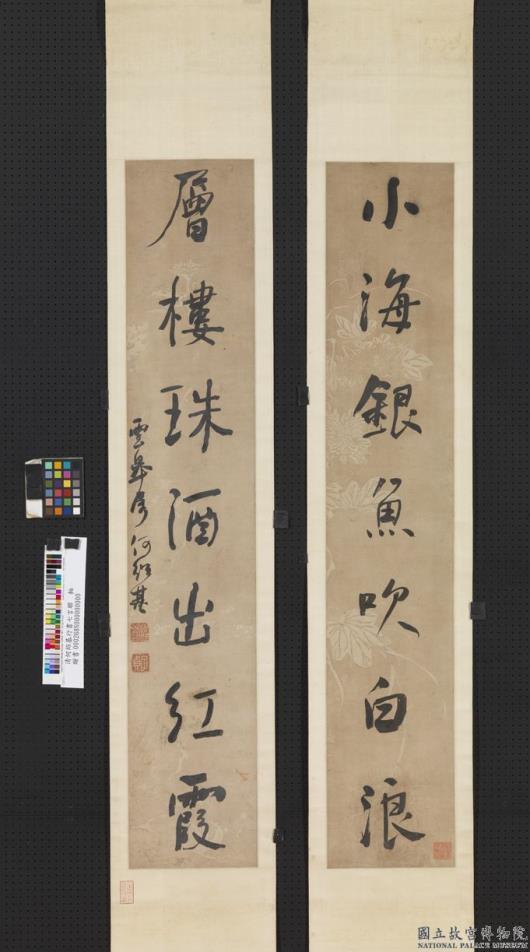 小海銀魚吹白浪
層樓珠酒出紅霞
雲 何紹基
清何紹基行書七言聯 軸
國立故宮博物院
NATIONAL PALACE MUSEUM